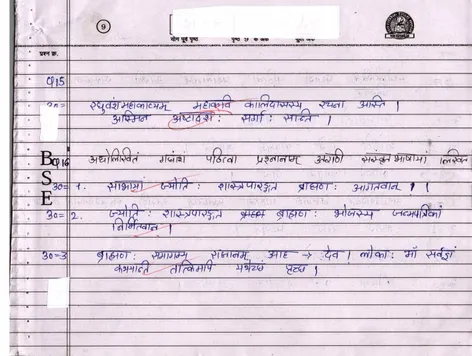 9
प्रश्न क्र.
Q15
उ०= रघुवंशमहाकाव्यम् महाकवि कालिदासस्य रचना अस्ति ।
अस्मिन अष्टादश: सर्गा: सन्ति ।
B Q16 अधोलिखितं गद्यांशं पठित्वा प्रश्नानाम् उत्तराणि संस्कृत भाषाया लिखत
S उ०= 1. ज्योति: शास्त्रपारङ्गत ब्राह्मण: आगतवान् ।
E उ०= 2. ज्योति: शास्त्रपारङ्गत ब्राह्मण: भोजस्य जन्मपत्रिकां
निर्मितवान ।
उ०=3 ब्राह्मण: राजानम् आह → देव । लोका: माँ सर्वज्ञं
कथयन्ति तत्किमपि यथेच्छं पृच्छ ।